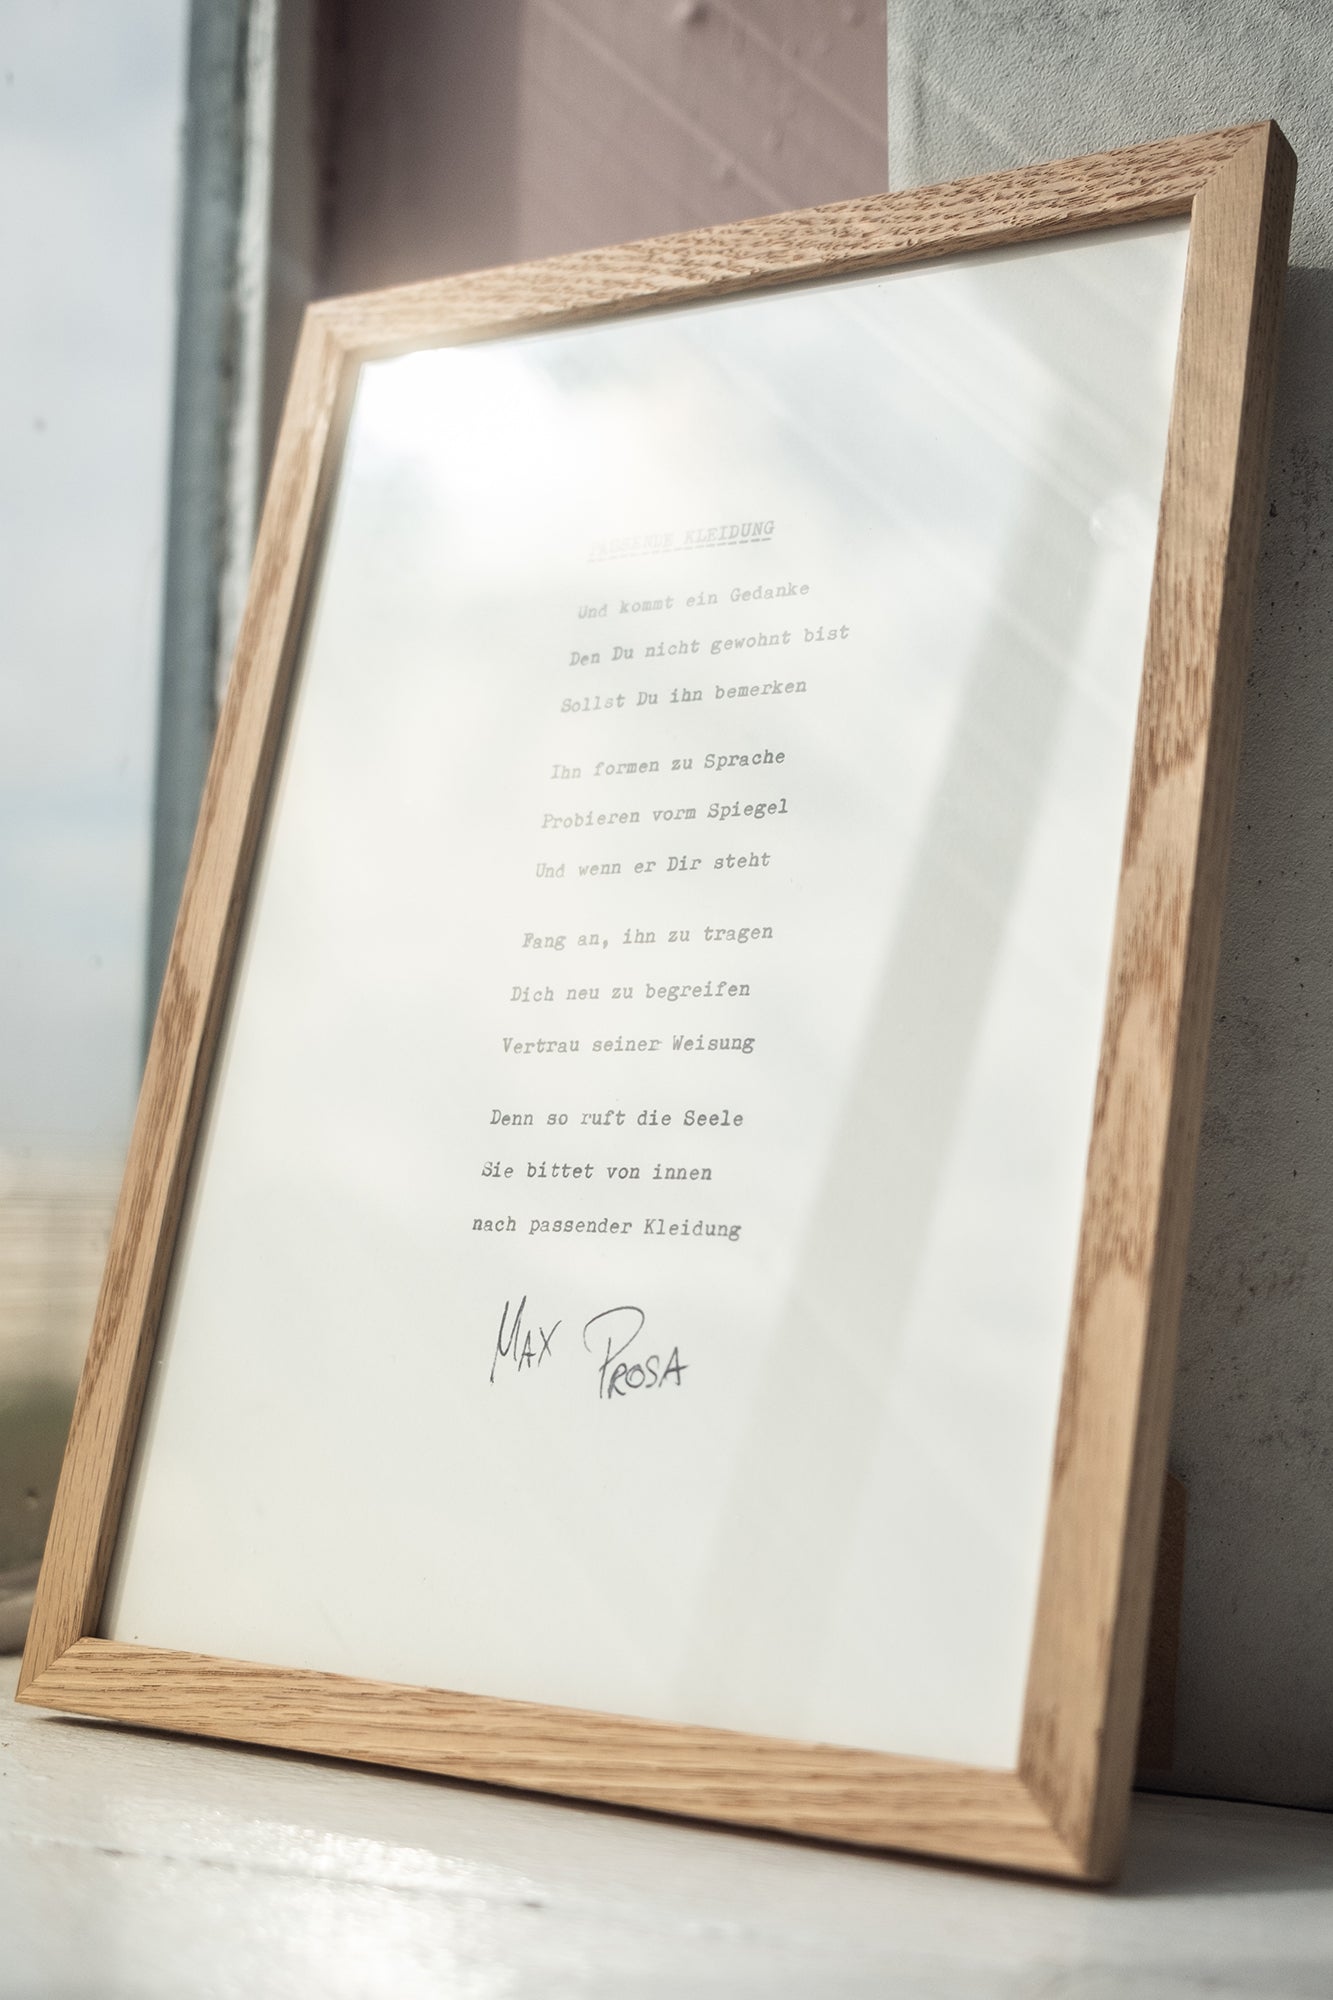 PASSENDE KLEIDUNG
Und kommt ein Gedanke
Den Du nicht gewohnt bist
Sollst Du ihn bemerken
Ihn formen zu Sprache
Probieren vorm Spiegel
Und wenn er Dir steht
Fang an, ihn zu tragen
Dich neu zu begreifen
Vertrau seiner Weisung
Denn so ruft die Seele
Sie bittet von innen
nach passender Kleidung
MAX PROSA